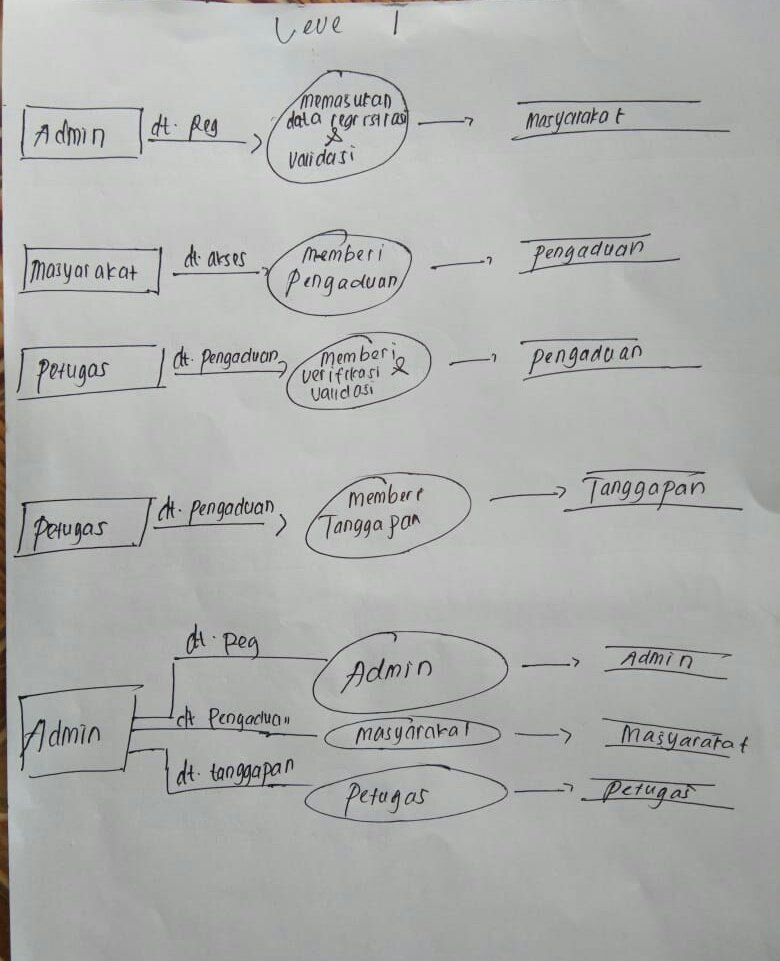 Leve 1
Admin
dt. Reg
memasukan
data regristrasi
&
validasi
masyarakat
masyarakat
dt. akses
memberi
Pengaduan
Pengaduan
Petugas
dt. Pengaduan
memberi
verifikasi &
validasi
Pengaduan
Petugas
dt. Pengaduan
memberi
Tanggapan
Tanggapan
Admin
dt. Reg
Admin
Admin
dt Pengaduan
masyarakat
Masyarakat
dt. tanggapan
Petugas
Petugas